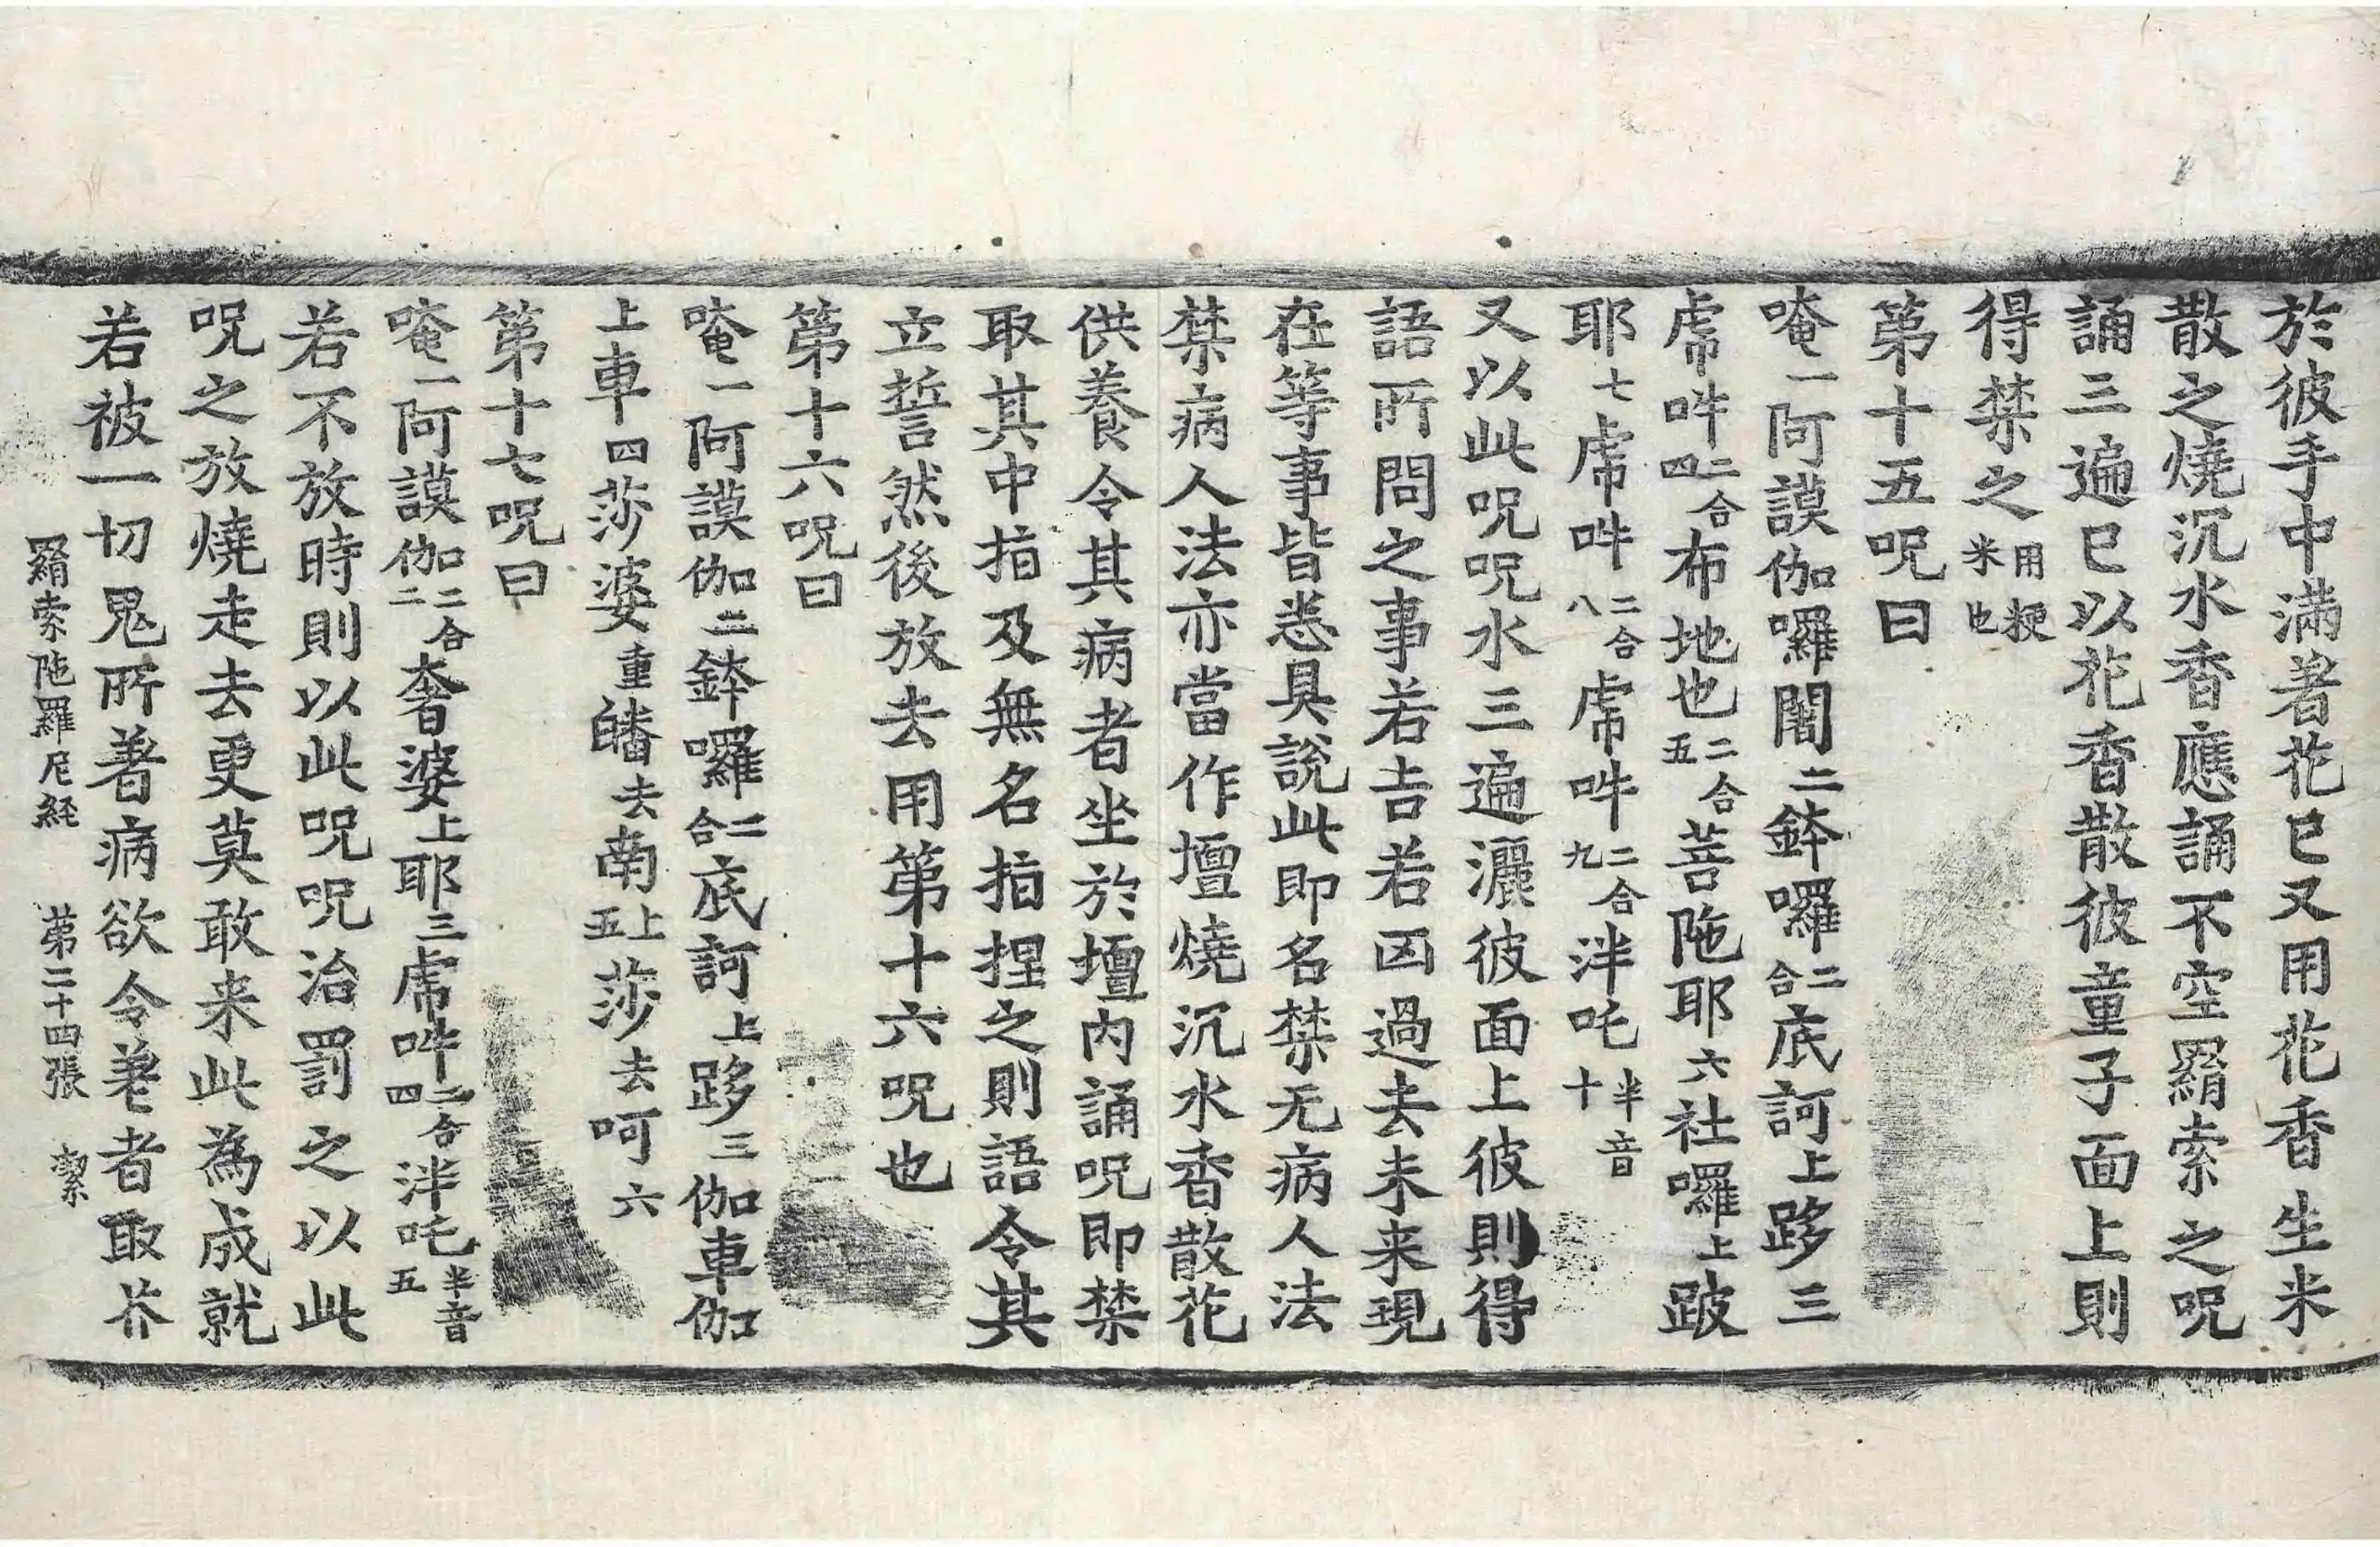 於彼手中滿著花已又用花香生米
散之燒沉水香應誦不空羂索之呪
誦三遍已以花香散彼童子面上則
得禁之用粳米也
第十五呪曰
唵一阿謨伽囉闍二鉢囉二合底訶上跢三
虎𤙖二合四布地也二合五菩陁耶六社囉上跛
耶七虎𤙖二合八虎𤙖二合九泮吒半音十
又以此呪呪水三遍灑彼面上彼則得
語所問之事若吉若凶過去未来現
在等事皆悉具說此即名禁无病人法
禁病人法亦當作壇燒沉水香散花
供養令其病者坐於壇內誦呪即禁
取其中指及無名指捏之則語令其
立誓然後放去用第十六呪也
第十六呪曰
唵一阿謨伽二鉢囉二合底訶上跢三伽車伽
上車四莎婆重皤去南上五莎去呵六
第十七呪曰
唵一阿謨伽二合二奢婆上耶三虎𤙖二合四泮吒半音五
若不放時則以此呪呪治罰之以此
呪之放燒走去更莫敢来此為成就
若被一切鬼所著病欲令差者取芥
羂索陁羅尼経 第二十四張 潔